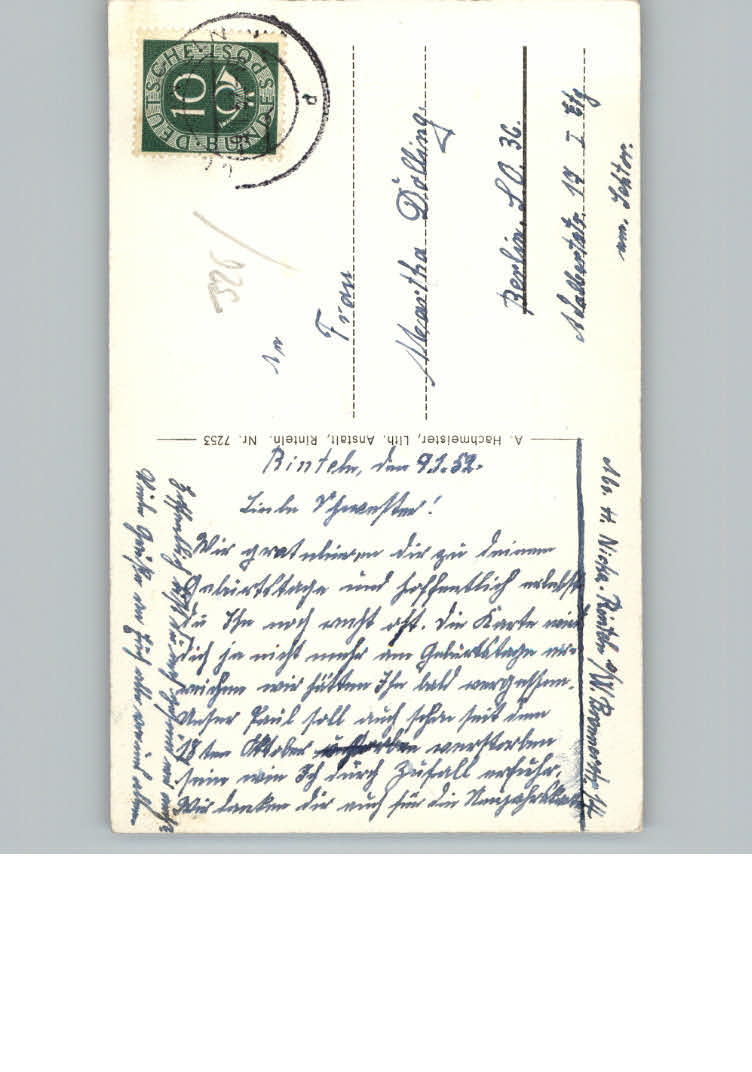 Rinteln, den 9.1.52.
Liebe Schwester!
Wir gratulieren dir zu deinem
Geburtstage und hoffentlich erlebst
du Ihn noch recht oft. Die Karte wird
dich ja nicht mehr am Geburtstage er-
reichen wir hätten Ihn bald vergessen.
Unser Paul soll auch schon seit dem
18ten Oktober verstorben
sein wie Ich durch Zufall erfuhr.
Wir danken dir auch für die Neujahrskarte
Hoffentlich seid
Viele Grüße an Euch alle von uns allen
Abs. H. Rinteln a/W.
A. Hachmeister, Lith. Anstalt, Rinteln. Nr. 7253
DEUTSCHE BUNDESPOST
10
An
Frau
Martha Dölling
Berlin. S.O. 36.
Adalbertstr. 17 I Etg
am. Sektor.